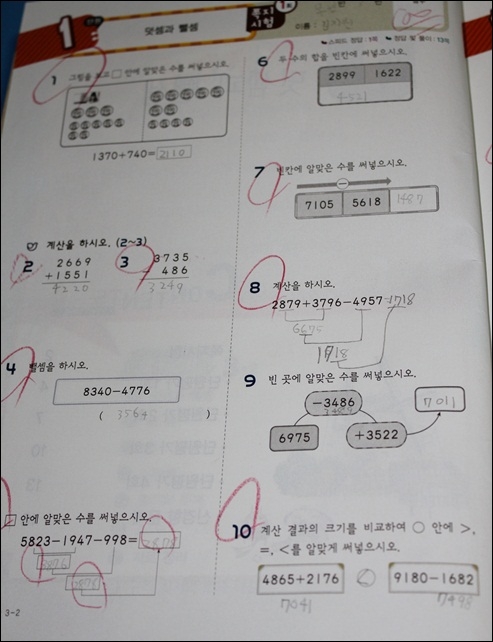 1 단원
덧셈과 뺄셈
쪽지시험 1회
이름 :
▶스피드 정답 : 1쪽 ▶정답 및 풀이 : 13쪽
1 그림을 보고 □ 안에 알맞은 수를 써넣으시오.
1370+740=2110
계산을 하시오. (2~3)
2
2669
+1551
4220
3
3735
- 486
3249
4 뺄셈을 하시오.
8340-4776
( 3564 )
□ 안에 알맞은 수를 써넣으시오.
5823-1947-998=
3-2
6 두 수의 합을 빈칸에 써넣으시오.
2899 1622
4521
7 빈칸에 알맞은 수를 써넣으시오.
7105 5618 1487
8 계산을 하시오.
2879+3796-4957=1718
6675
1718
9 빈 곳에 알맞은 수를 써넣으시오.
-3486
3489
6975
+3522
7011
10 계산 결과의 크기를 비교하여 ○ 안에 >,
=, <를 알맞게 써넣으시오.
4865+2176 < 9180-1682
7041 7498